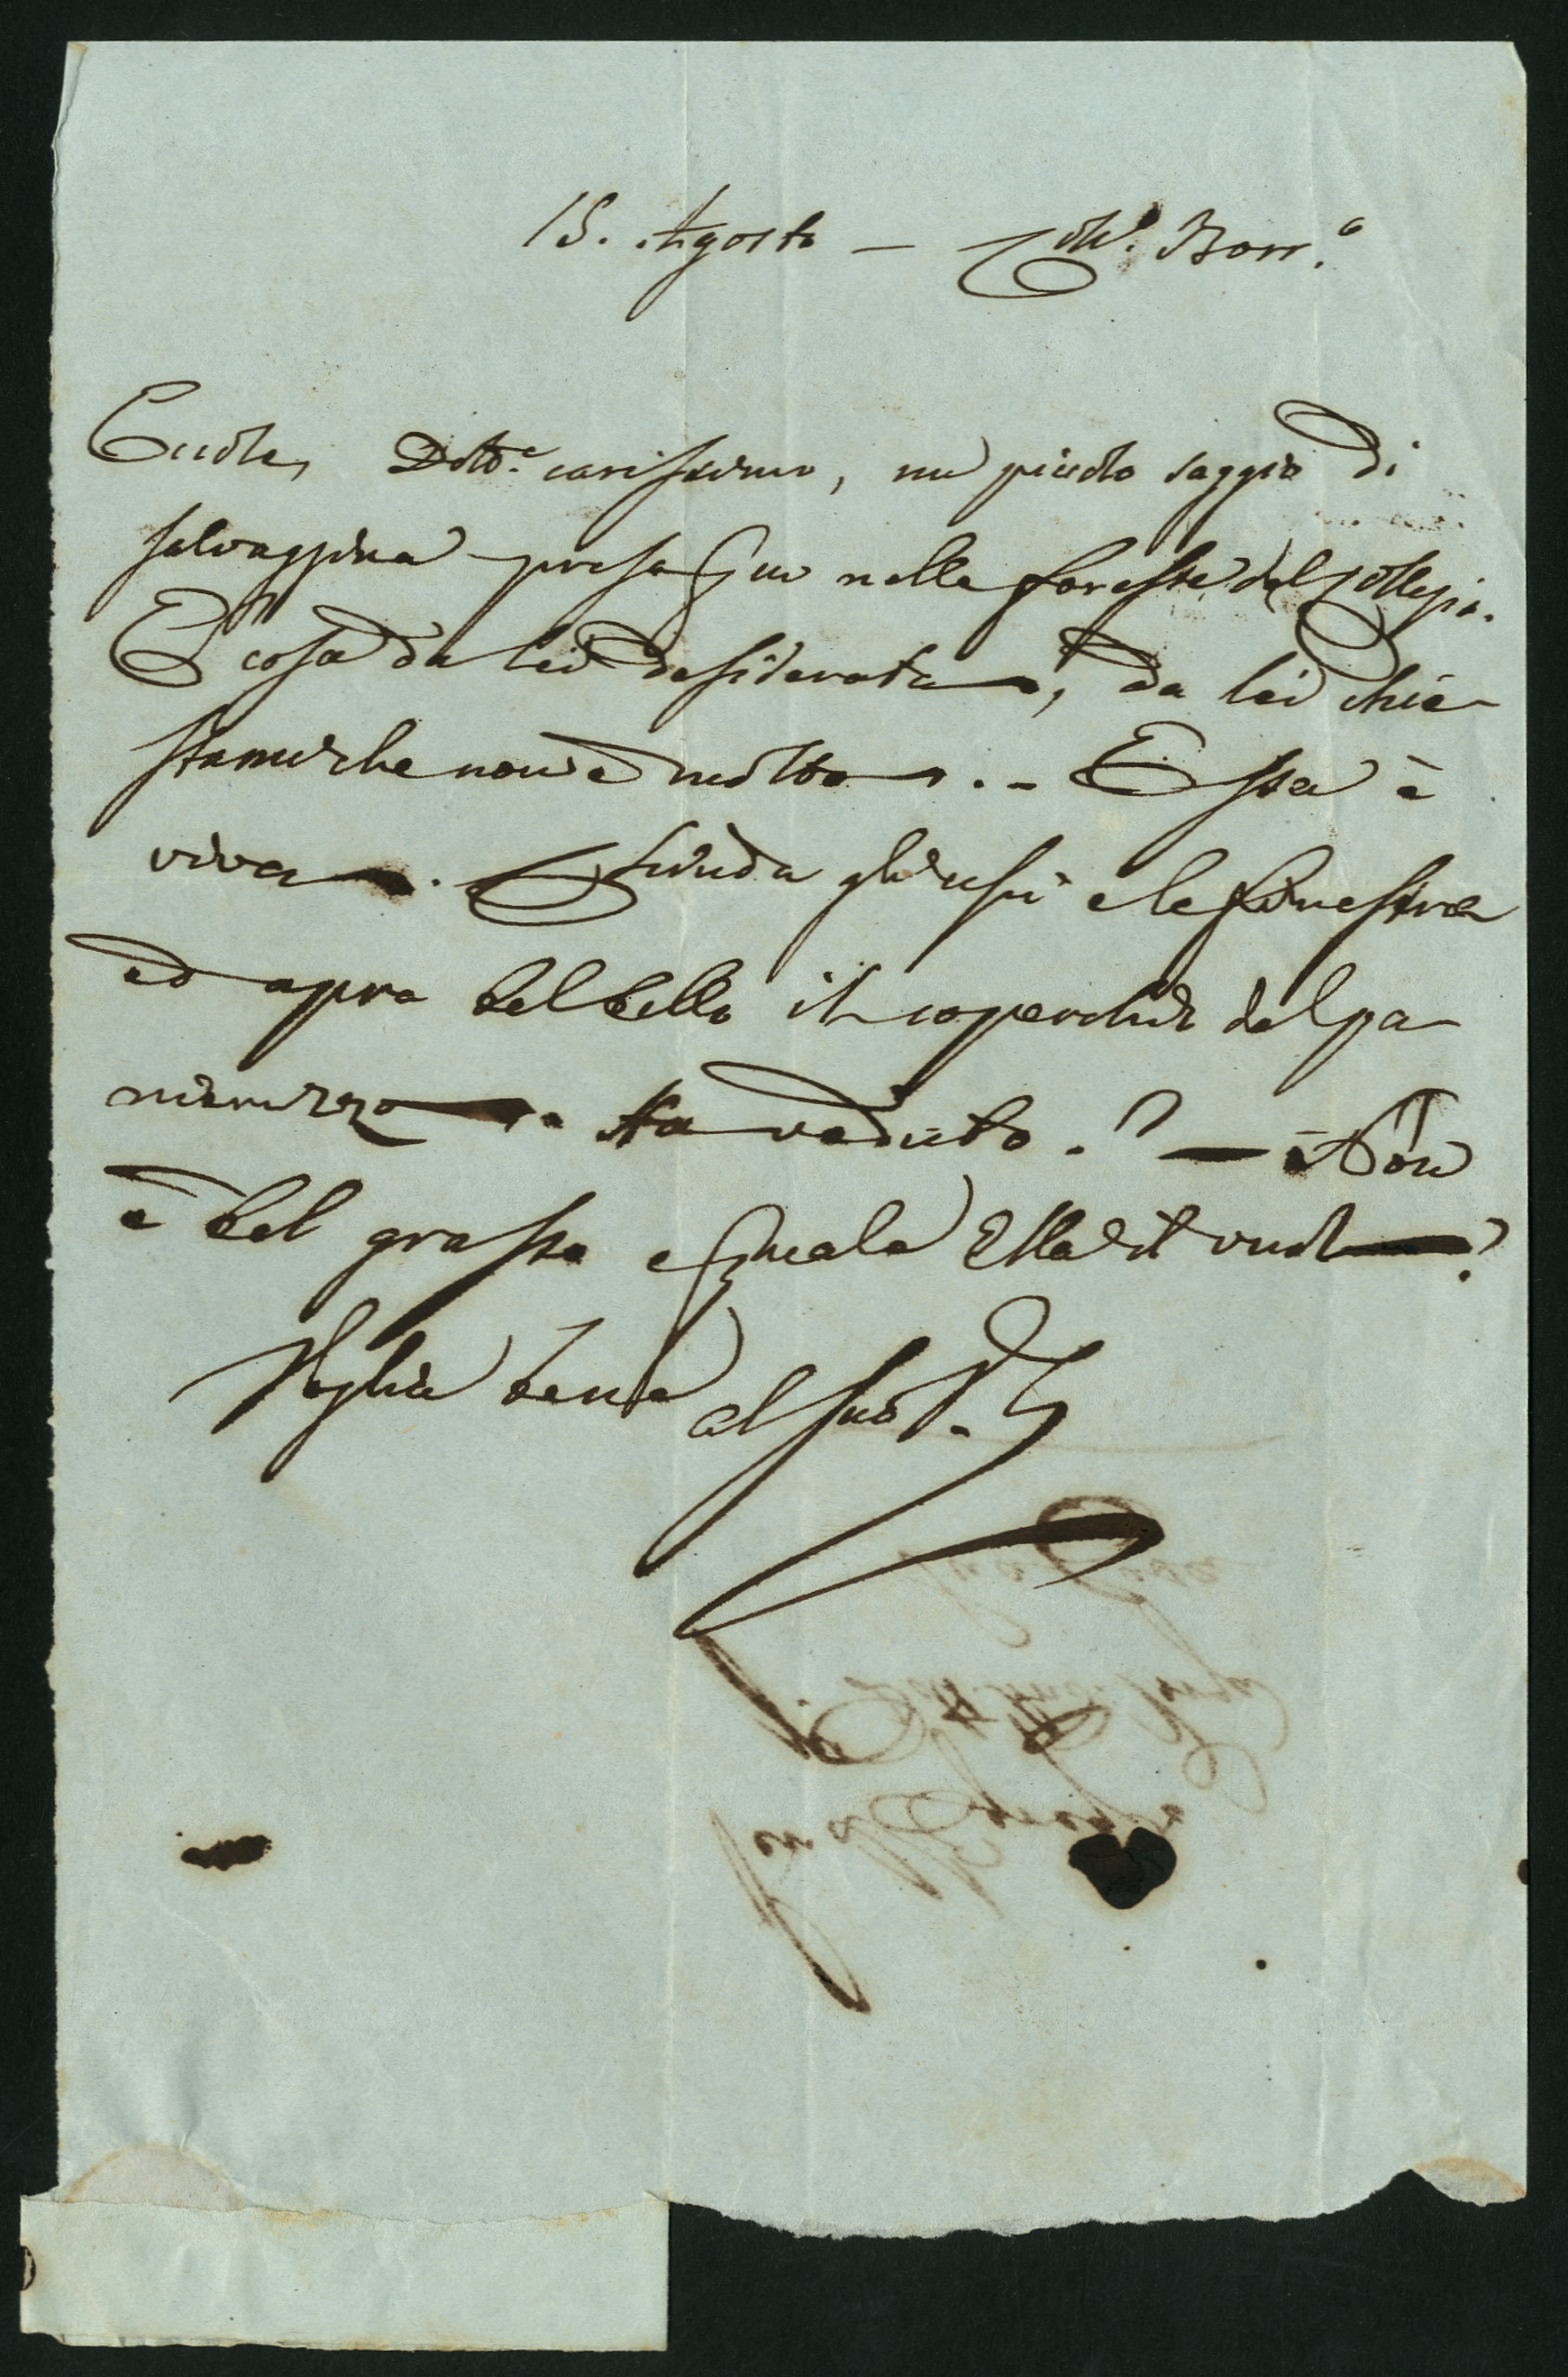 15. Agosto — Coll.o Borr.o
Eccole, Dott.e carissimo, un piccolo saggio di
salvaggina presa quì nelle foreste del Collegio.
È cosa da lei desiderata, da lei chie-
stami che non è molto. - Essa è
viva. Chiuda gli usci e le finestre
ed apra bel bello il coperchio del pa
nieruzzo. Ha veduto? — Non
è bel grasso e quale Ella il vuol?
Voglia bene al suo